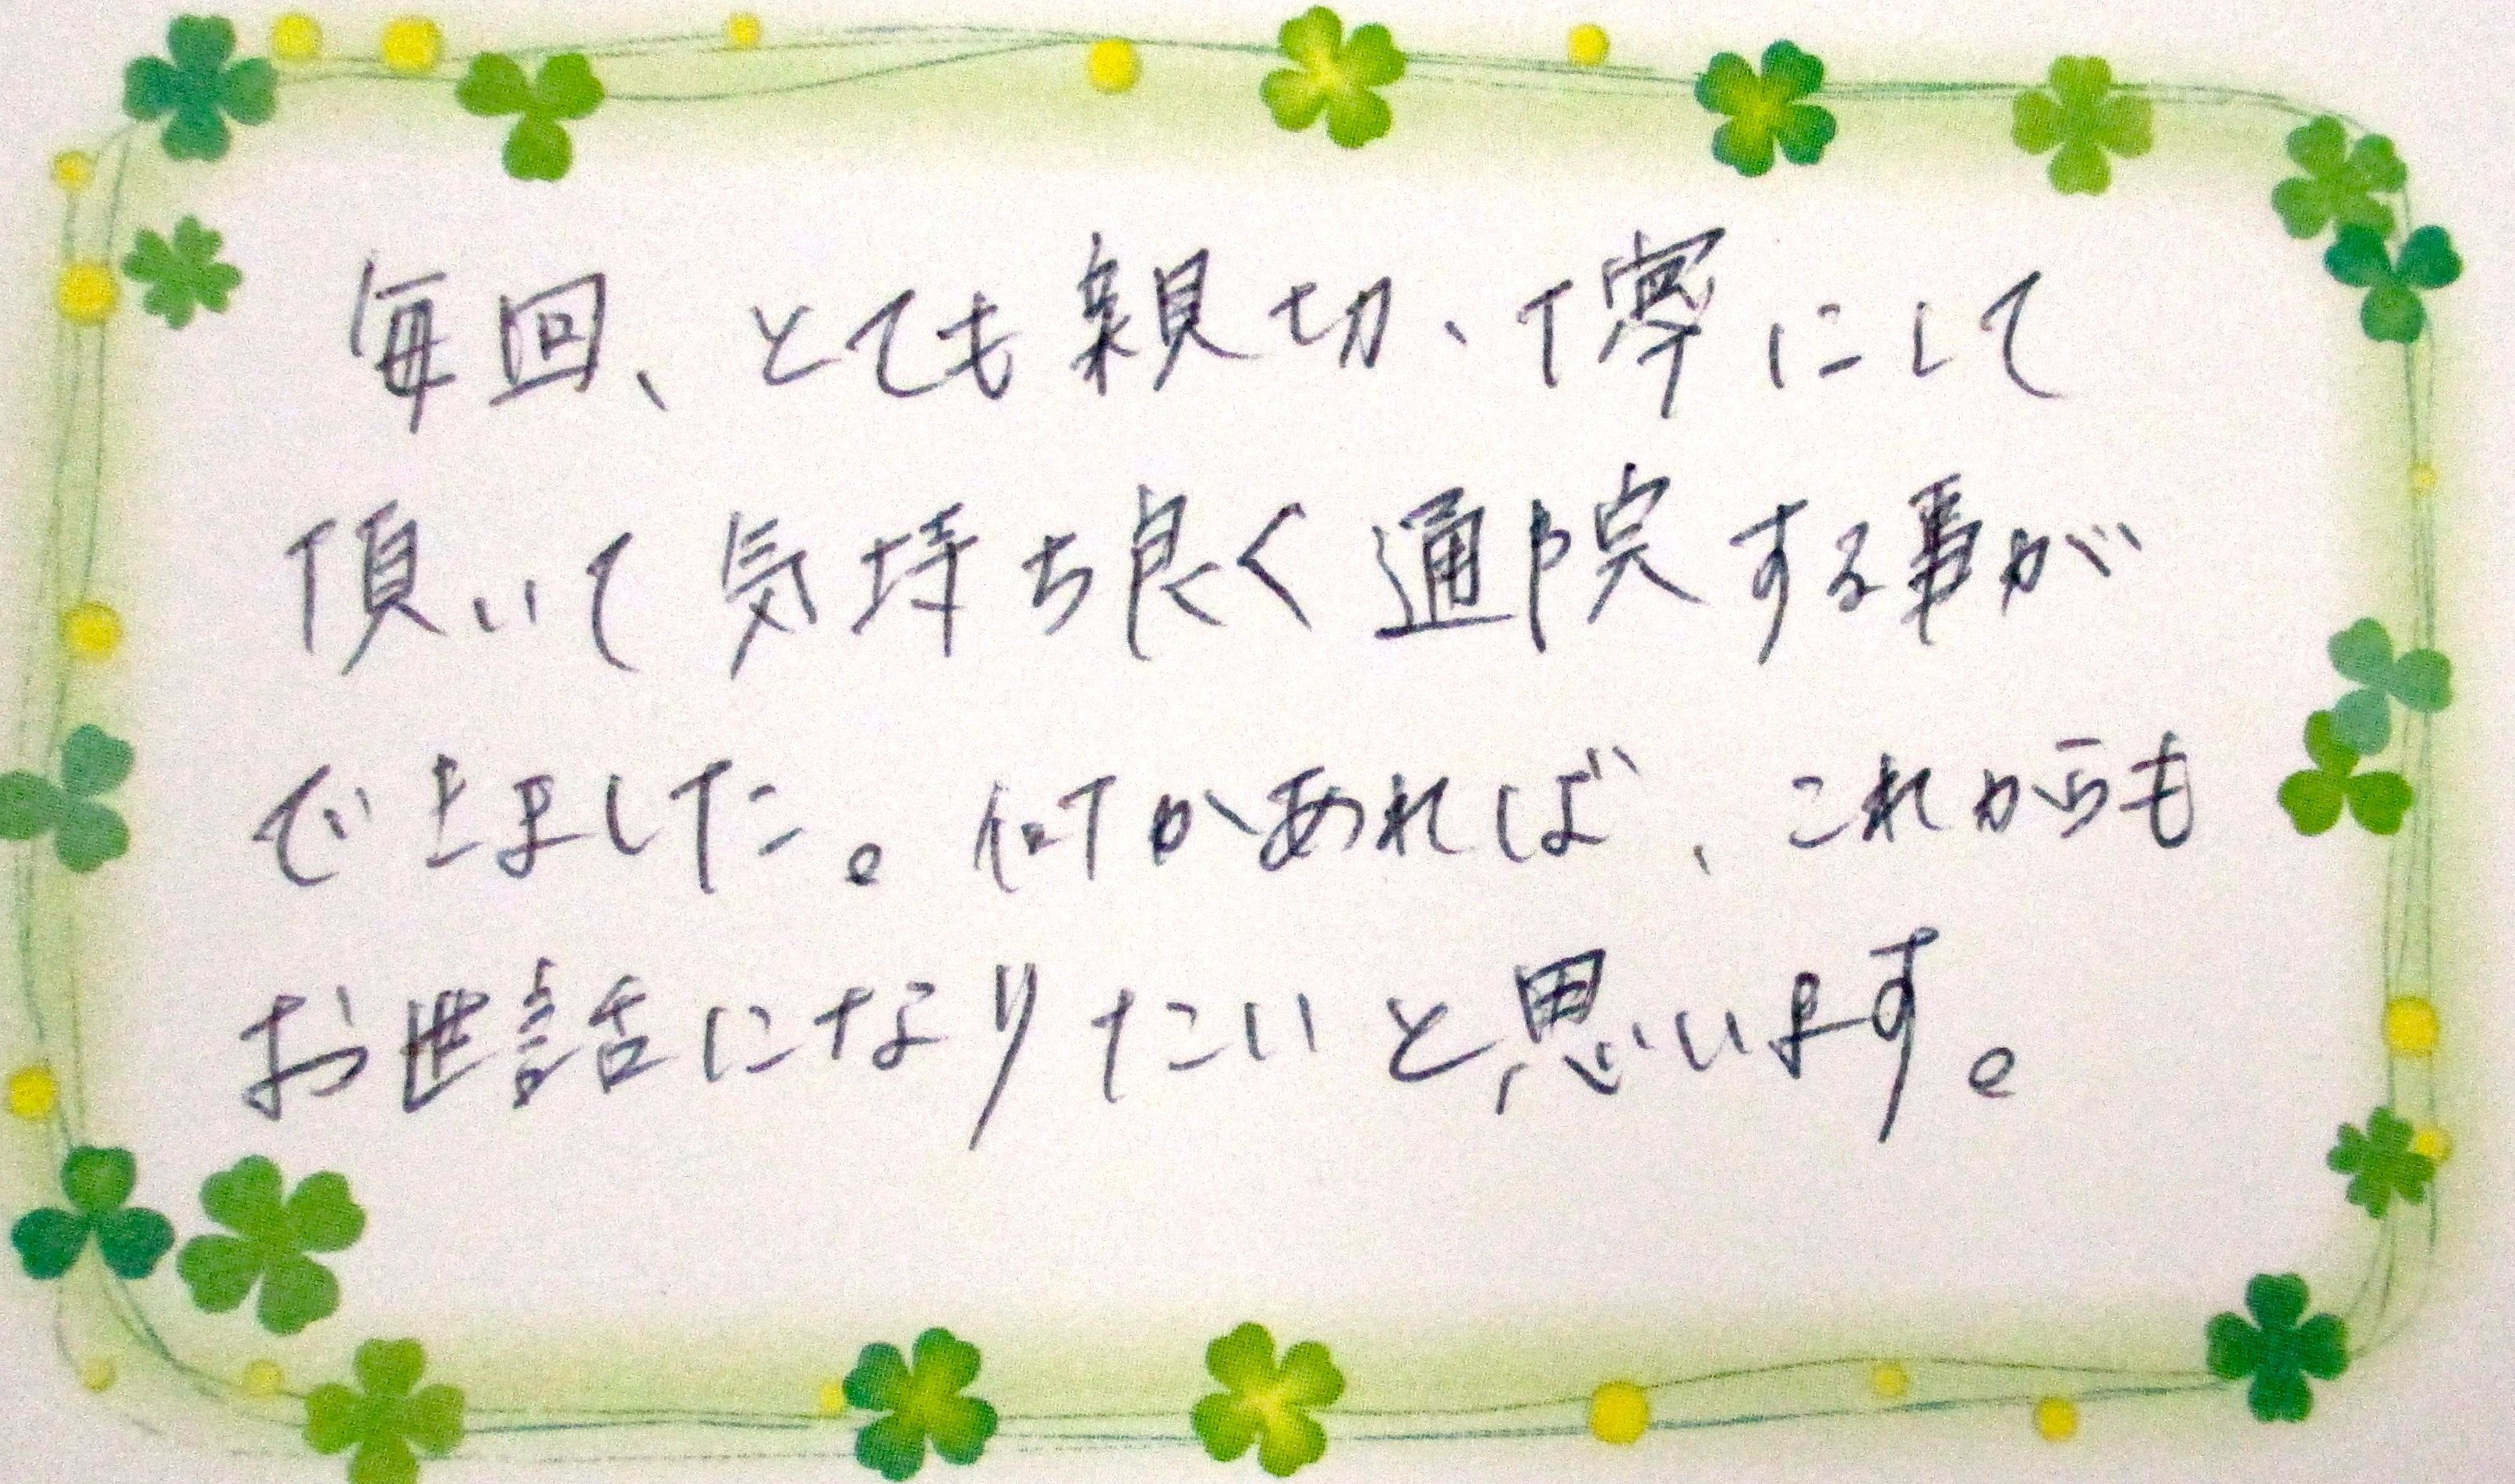 毎回、とても親切、丁寧にして
頂いて気持ち良く通院する事が
できました。何かあれば、これからも
お世話になりたいと思います。